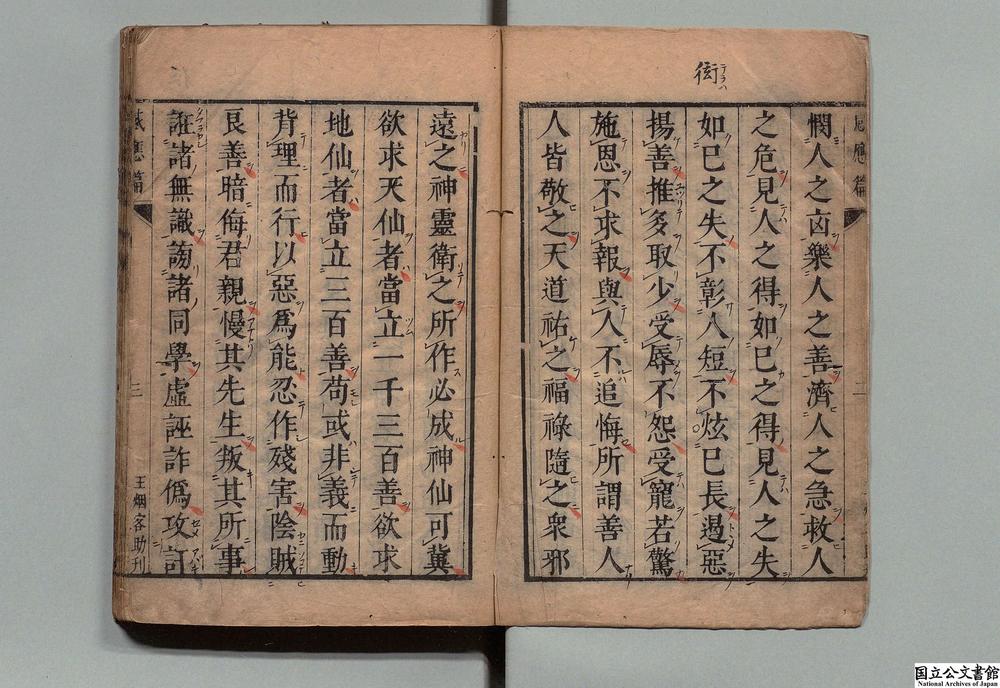 衒
テラハ
憫人之凶樂人之善濟人之急救人
之危見人之得如己之得見人之失
如己之失不彰人短不炫己長遏惡
揚善推多取少受辱不怨受寵若驚
施恩不求報與人不追悔所謂善人
人皆敬之天道祐之福祿隨之衆邪
遠之神靈衛之所作必成神仙可冀
欲求天仙者當立一千三百善欲求
地仙者當立三百善苟或非義而動
背理而行以惡爲能忍作殘害陰賊
良善暗侮君親慢其先生叛其所事
誑諸無識謗諸同學虛誣詐僞攻訐
感應篇
二
王烟客助刊
国立公文書館
National Archives of Japan